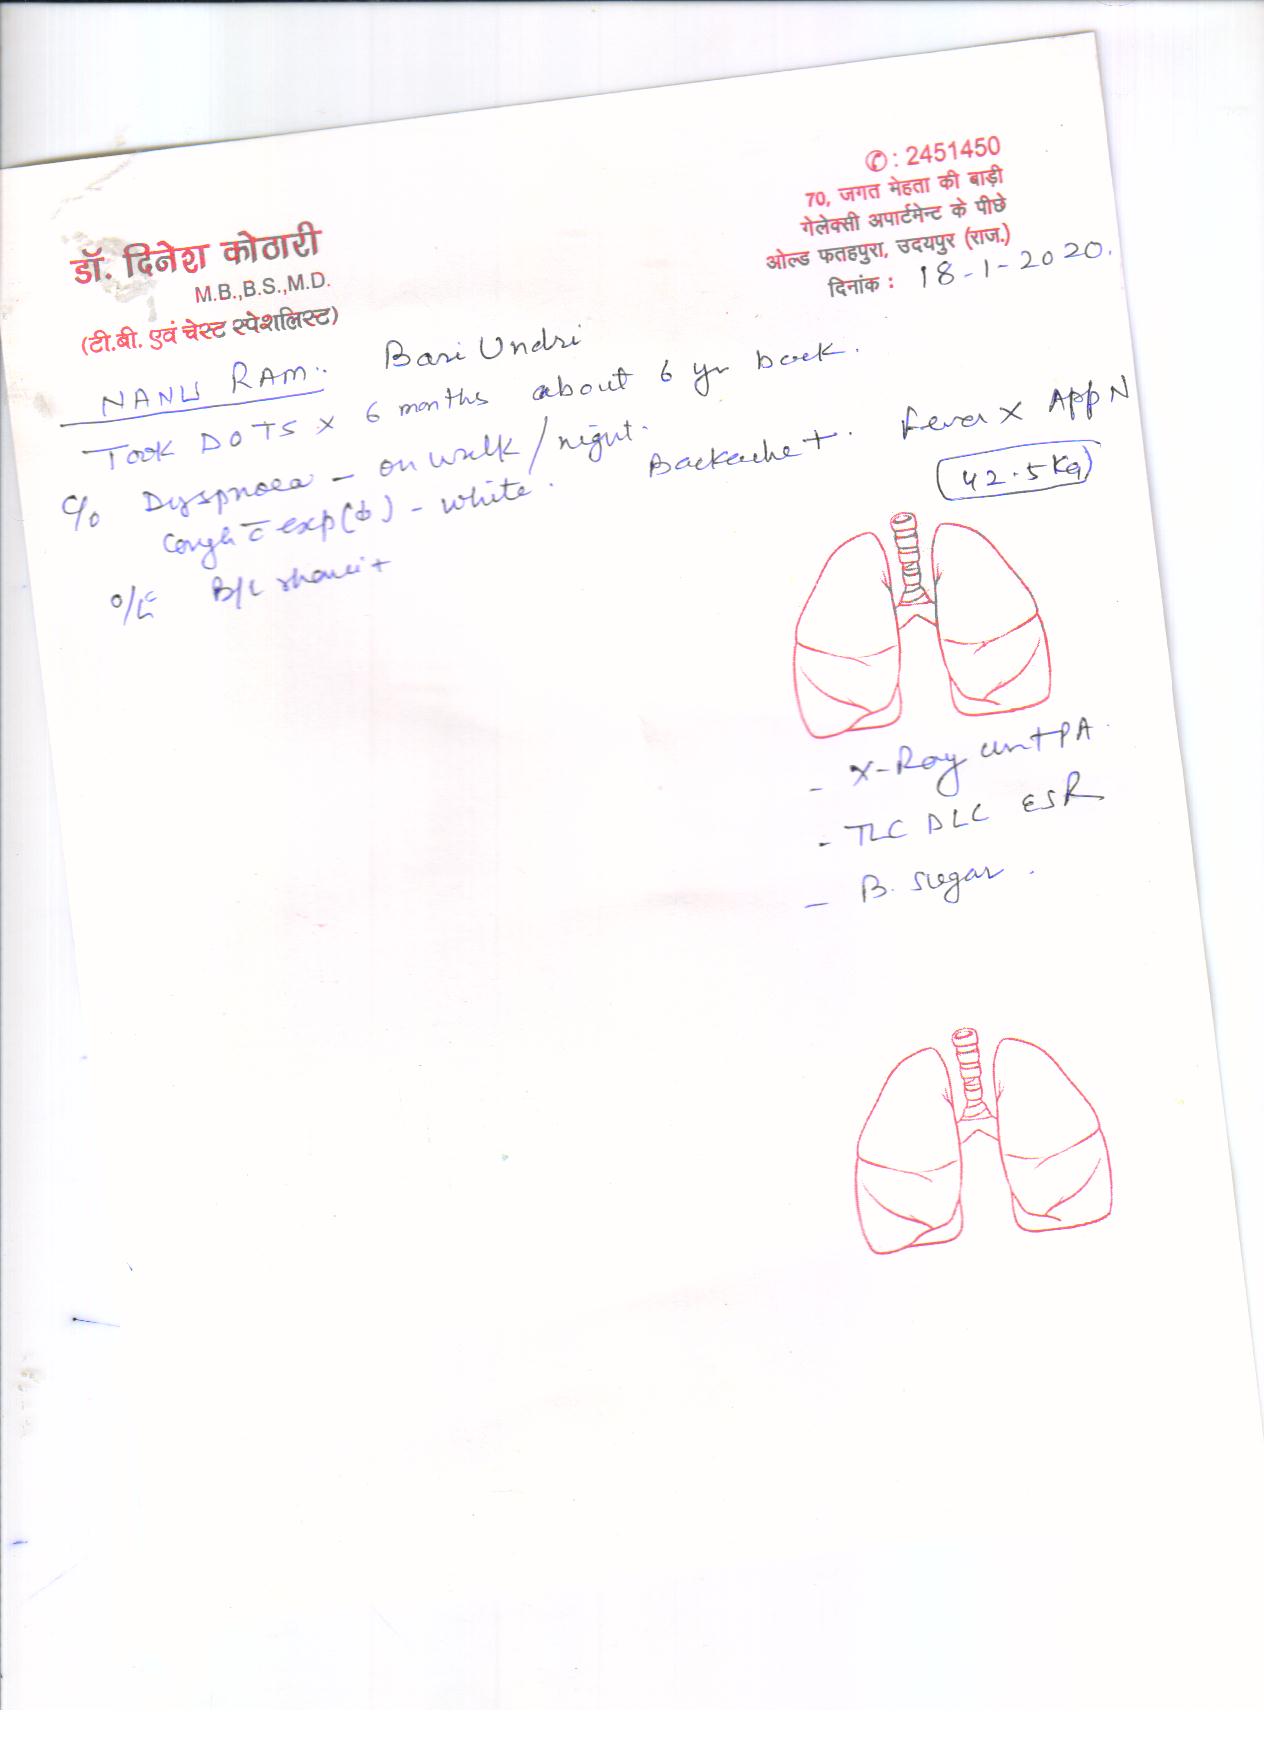 ✆ : 2451450
70, जगत मेहता की बाड़ी
गेलेक्सी अपार्टमेन्ट के पीछे
ओल्ड फतहपुरा, उदयपुर (राज.)
दिनांक : 18-1-2020.
डॉ. दिनेश कोठारी
M.B.,B.S.,M.D.
(टी.बी. एवं चेस्ट स्पेशलिस्ट)
NANU RAM. Bari Undri
Took DOTS x 6 months about 6 yr back.
C/o Dyspnoea - on walk / night. Backache + . Fever X App N
42.5 Kg
Cough c̄ exp(↓) - white.
O/E B/L rhonchi +
- X-Ray PA
- TLC DLC ESR
- B. Sugar.